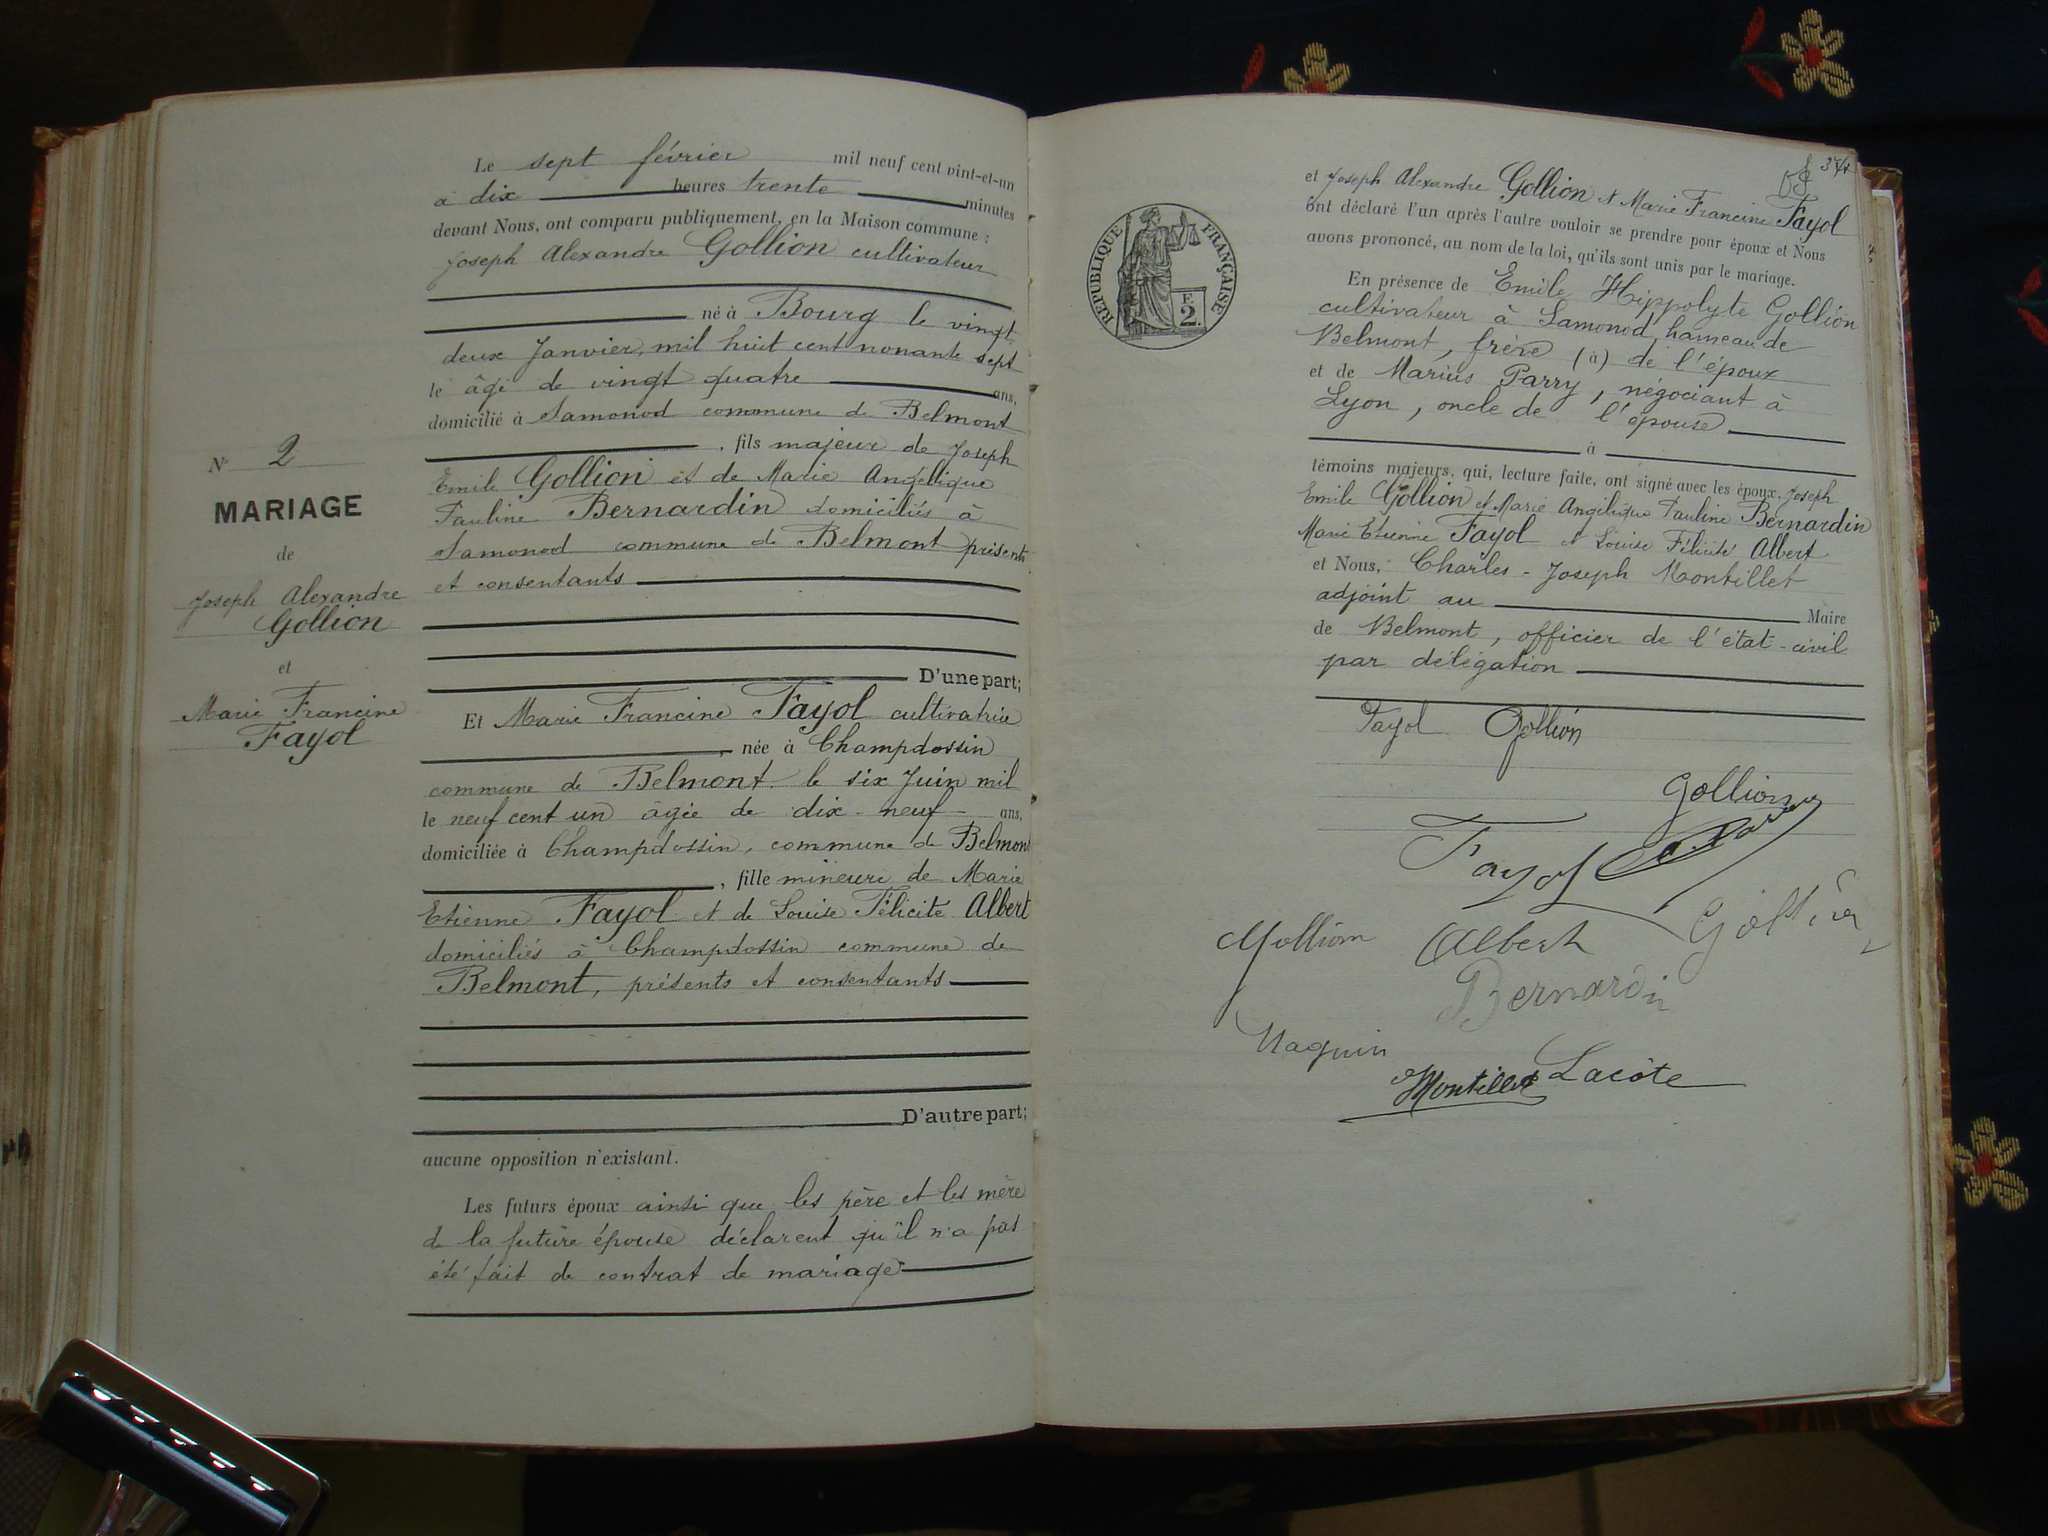 Le sept février mil neuf cent vint-et-un
à dix heures trente minutes
devant Nous, ont comparu publiquement, en la Maison commune :
Joseph Alexandre Gollion cultivateur
né à Bourg le vingt
deux Janvier, mil huit cent nonante sept
le âgé de vingt quatre ans,
domicilié à Samonod commune de Belmont
, fils majeur de Joseph
Emile Gollion et de Marie Angélique
Pauline Bernardin domiciliés à
Samonod commune de Belmont présents
et consentants
D'une part;
Et Marie Francine Fayol cultivatrice
, née à Champdossin
commune de Belmont le six Juin mil
le neuf cent un âgée de dix-neuf ans,
domiciliée à Champdossin, commune de Belmont
, fille mineure de Marie
Etienne Fayol et de Louise Félicité Albert
domiciliés à Champdossin commune de
Belmont, présents et consentants
D'autre part;
aucune opposition n'existant.
Les futurs époux ainsi que les père et les mère
de la future épouse déclarent qu'il n'a pas
été fait de contrat de mariage
N° 2
MARIAGE
de
Joseph Alexandre
Gollion
et
Marie Francine
Fayol
RÉPUBLIQUE FRANÇAISE
F.
2.
et Joseph Alexandre Gollion et Marie Francine Fayol
ont déclaré l'un après l'autre vouloir se prendre pour époux et Nous
avons prononcé, au nom de la loi, qu'ils sont unis par le mariage.
En présence de Emile Hippolyte Gollion
cultivateur à Samonod, hameau de
Belmont, frère (à) de l'époux
et de Marius Parry, négociant à
Lyon, oncle de l'épouse
à
témoins majeurs, qui, lecture faite, ont signé avec les époux, Joseph
Emile Gollion et Marie Angélique Pauline Bernardin
Marie Etienne Fayol et Louise Félicité Albert
et Nous, Charles-Joseph Montillet
adjoint au Maire
de Belmont, officier de l'état-civil
par délégation
Fayol Gollion
Gollion
Fayol
Gollion Albert Gollion
Bernardin
Naquin
Montillet Lacôte